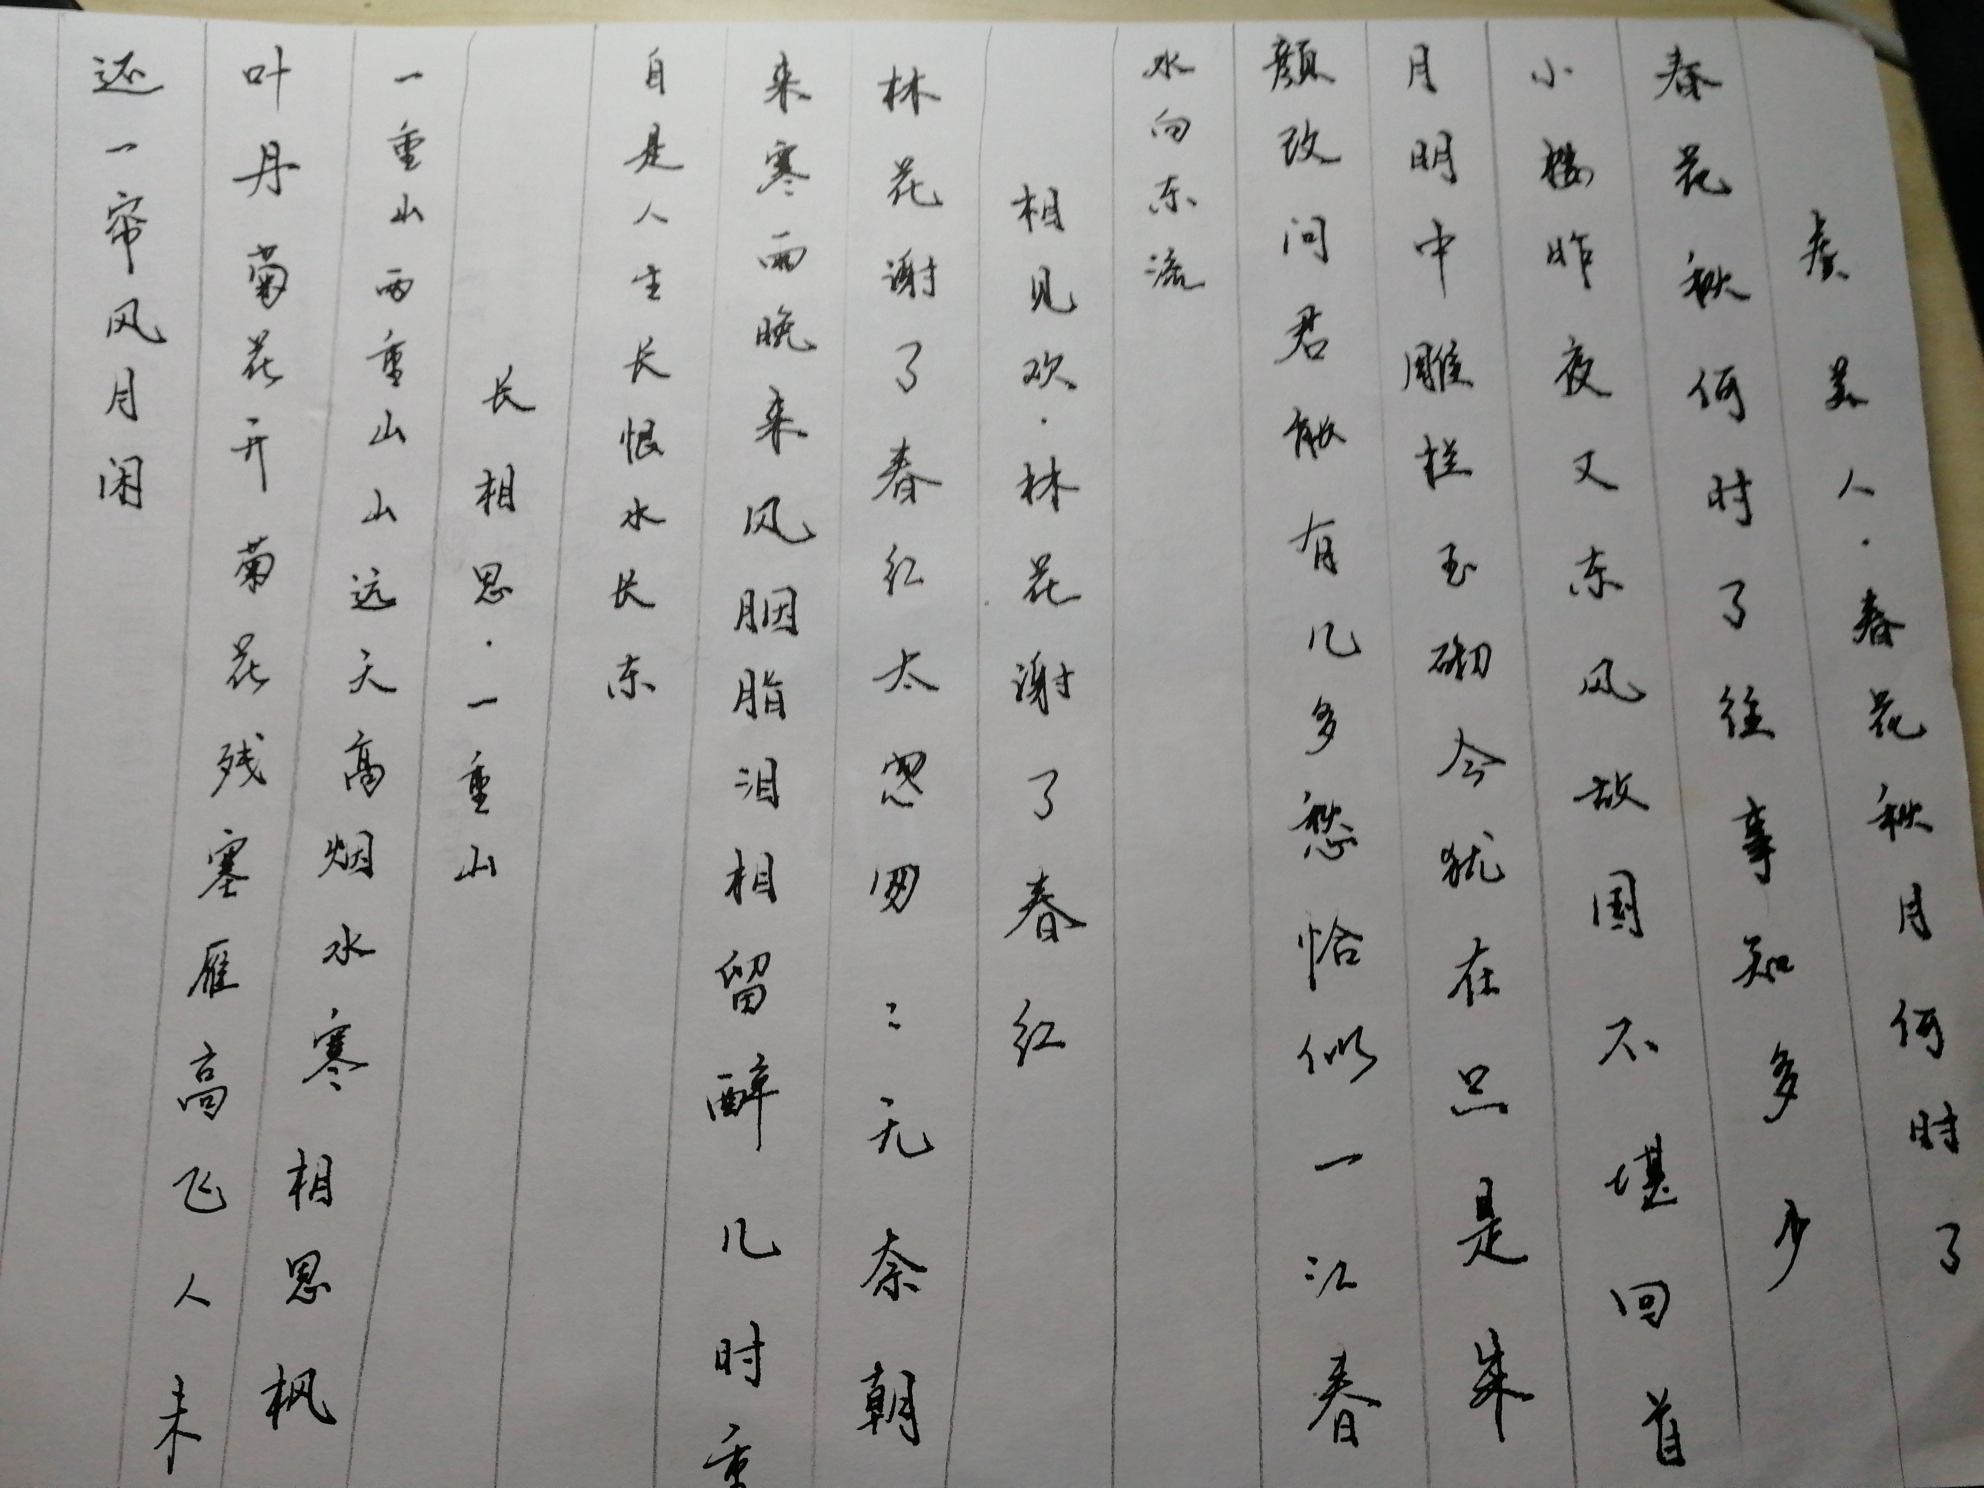 虞美人·春花秋月何时了
春花秋何时了往事知多少
小楼昨夜又东风故国不堪回首
月明中雕栏玉砌今犹在只是朱
颜改问君能有几多愁恰似一江春
水向东流
相见欢·林花谢了春红
林花谢了春红太怱匆〻无奈朝
来寒雨晚来风胭脂泪相留醉几时重
自是人生长恨水长东
长相思·一重山
一重山两重山山远天高烟水寒相思枫
叶丹菊花开菊花残塞雁高飞人未
还一帘风月闲